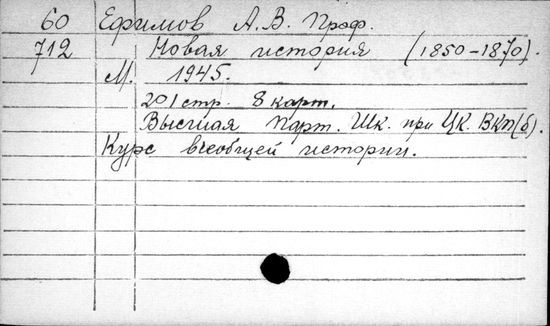 60 Ефимов А. В. Проф.
712 Новая история (1850-1870).
М. 1945.
201 стр. 8 карт.
Высшая Парт. Шк. при ЦК. ВКП(б)
Курс всеобщей истории.